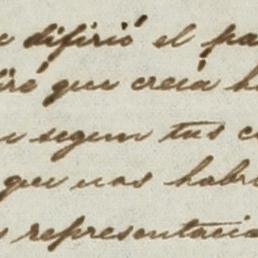 difirió el pa
iré que creía h
segun tus c
que nos habr
representacio